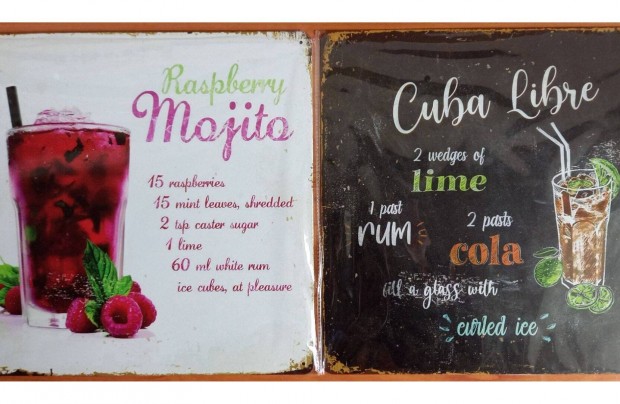 Raspberry
Mojito
15 raspberries
15 mint leaves, shredded
2 tsp caster sugar
1 lime
60 ml white rum
ice cubes, at pleasure
Cuba Libre
2 wedges of
lime
1 past
rum
2 pasts
cola
fill a glass with
curled ice